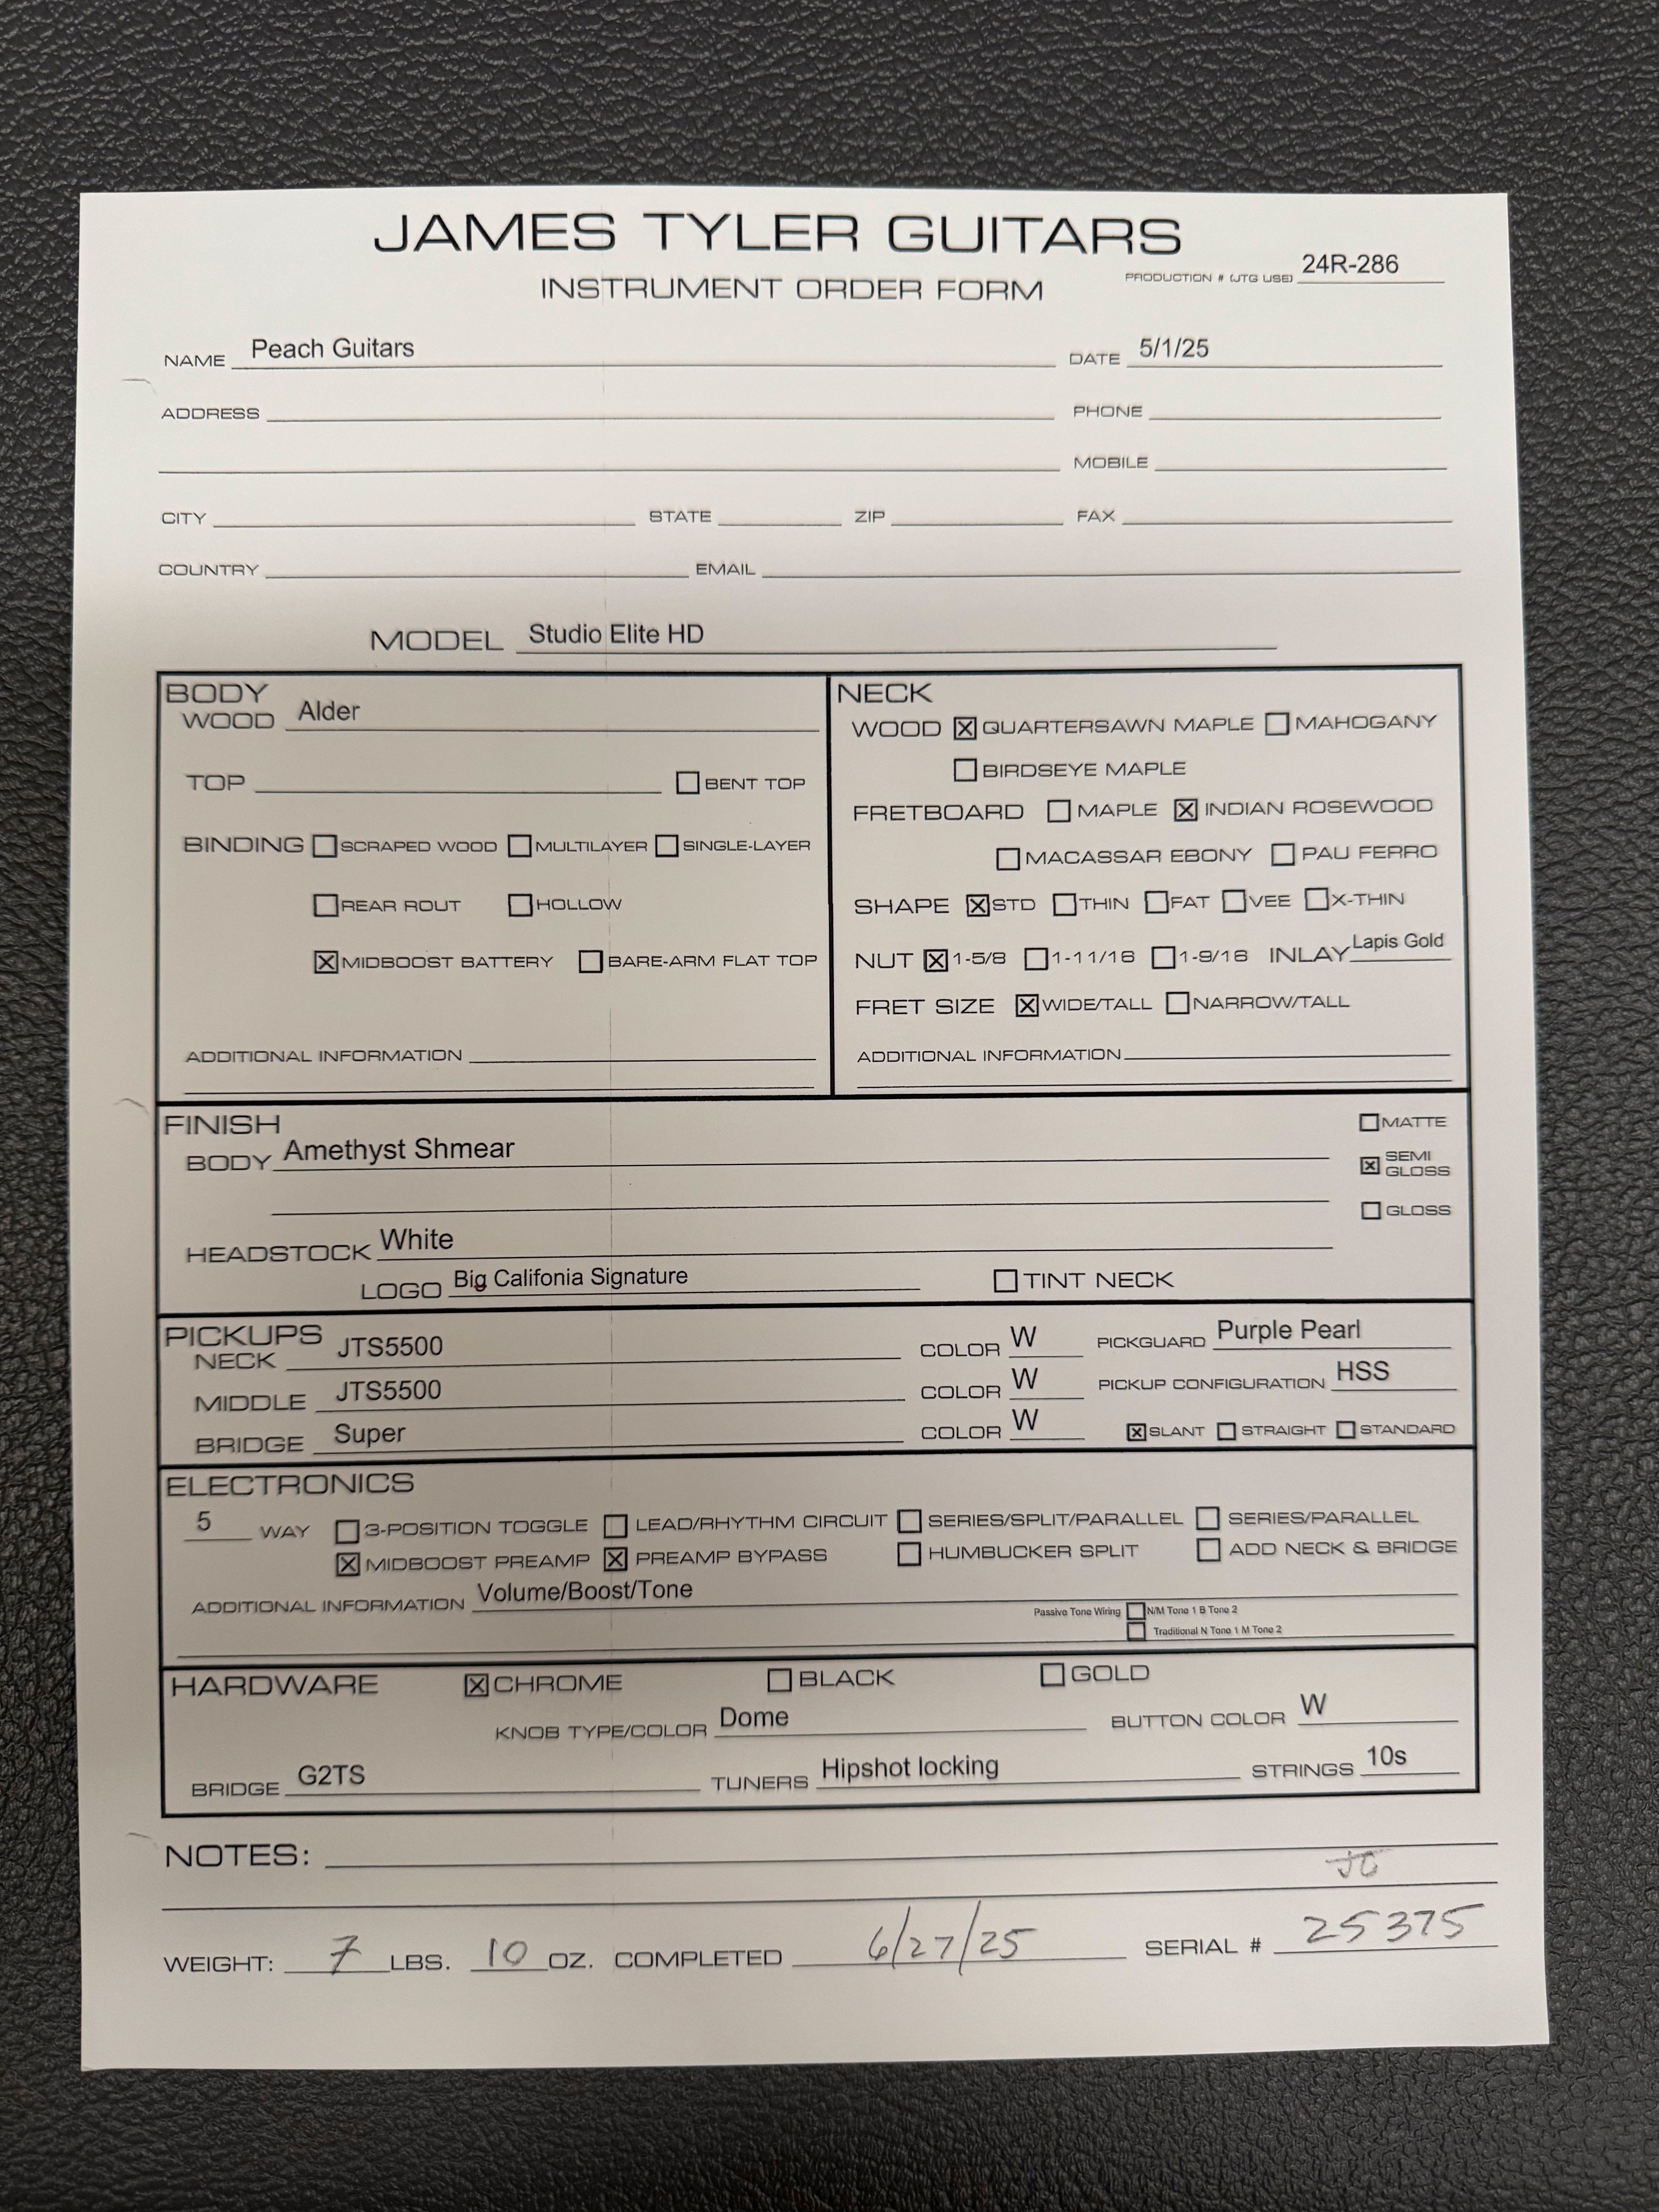 JAMES TYLER GUITARS
INSTRUMENT ORDER FORM
PRODUCTION # (JTG USE) 24R-286
NAME Peach Guitars DATE 5/1/25
ADDRESS PHONE
MOBILE
CITY STATE ZIP FAX
COUNTRY EMAIL
MODEL Studio Elite HD
BODY
WOOD Alder
TOP ☐ BENT TOP
BINDING ☐ SCRAPED WOOD ☐ MULTILAYER ☐ SINGLE-LAYER
☐ REAR ROUT ☐ HOLLOW
☒ MIDBOOST BATTERY ☐ BARE-ARM FLAT TOP
ADDITIONAL INFORMATION
NECK
WOOD ☒ QUARTERSAWN MAPLE ☐ MAHOGANY
☐ BIRDSEYE MAPLE
FRETBOARD ☐ MAPLE ☒ INDIAN ROSEWOOD
☐ MACASSAR EBONY ☐ PAU FERRO
SHAPE ☒ STD ☐ THIN ☐ FAT ☐ VEE ☐ X-THIN
NUT ☒ 1-5/8 ☐ 1-11/16 ☐ 1-9/16 INLAY Lapis Gold
FRET SIZE ☒ WIDE/TALL ☐ NARROW/TALL
ADDITIONAL INFORMATION
FINISH
BODY Amethyst Shmear
☐ MATTE
☒ SEMI GLOSS
☐ GLOSS
HEADSTOCK White
LOGO Big Califonia Signature ☐ TINT NECK
PICKUPS
NECK JTS5500 COLOR W PICKGUARD Purple Pearl
MIDDLE JTS5500 COLOR W PICKUP CONFIGURATION HSS
BRIDGE Super COLOR W ☒ SLANT ☐ STRAIGHT ☐ STANDARD
ELECTRONICS
5 WAY ☐ 3-POSITION TOGGLE ☐ LEAD/RHYTHM CIRCUIT ☐ SERIES/SPLIT/PARALLEL ☐ SERIES/PARALLEL
☒ MIDBOOST PREAMP ☒ PREAMP BYPASS ☐ HUMBUCKER SPLIT ☐ ADD NECK & BRIDGE
ADDITIONAL INFORMATION Volume/Boost/Tone
Passive Tone Wiring ☐ N/M Tone 1 B Tone 2
☐ Traditional N Tone 1 M Tone 2
HARDWARE ☒ CHROME ☐ BLACK ☐ GOLD
KNOB TYPE/COLOR Dome BUTTON COLOR W
BRIDGE G2TS TUNERS Hipshot locking STRINGS 10s
NOTES:
WEIGHT: 7 LBS. 10 OZ. COMPLETED 6/27/25 SERIAL # 25375